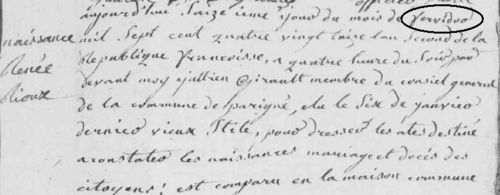 aujourd'huy Saize ieme jour du mois de fervidor
naissance mil Sept cent quatre vingt traise lan Second de la
Renée République francoisse, a quatre heure du Soir par
Rioux devant moy jullien Girault membre du consiel general
de la commune de parigné, elu le Six de janvier
dernier vieux Stile, pour dresser les ates destiné
a constater les naissances mariage et docés des
citoyens; est comparu en la maison commune